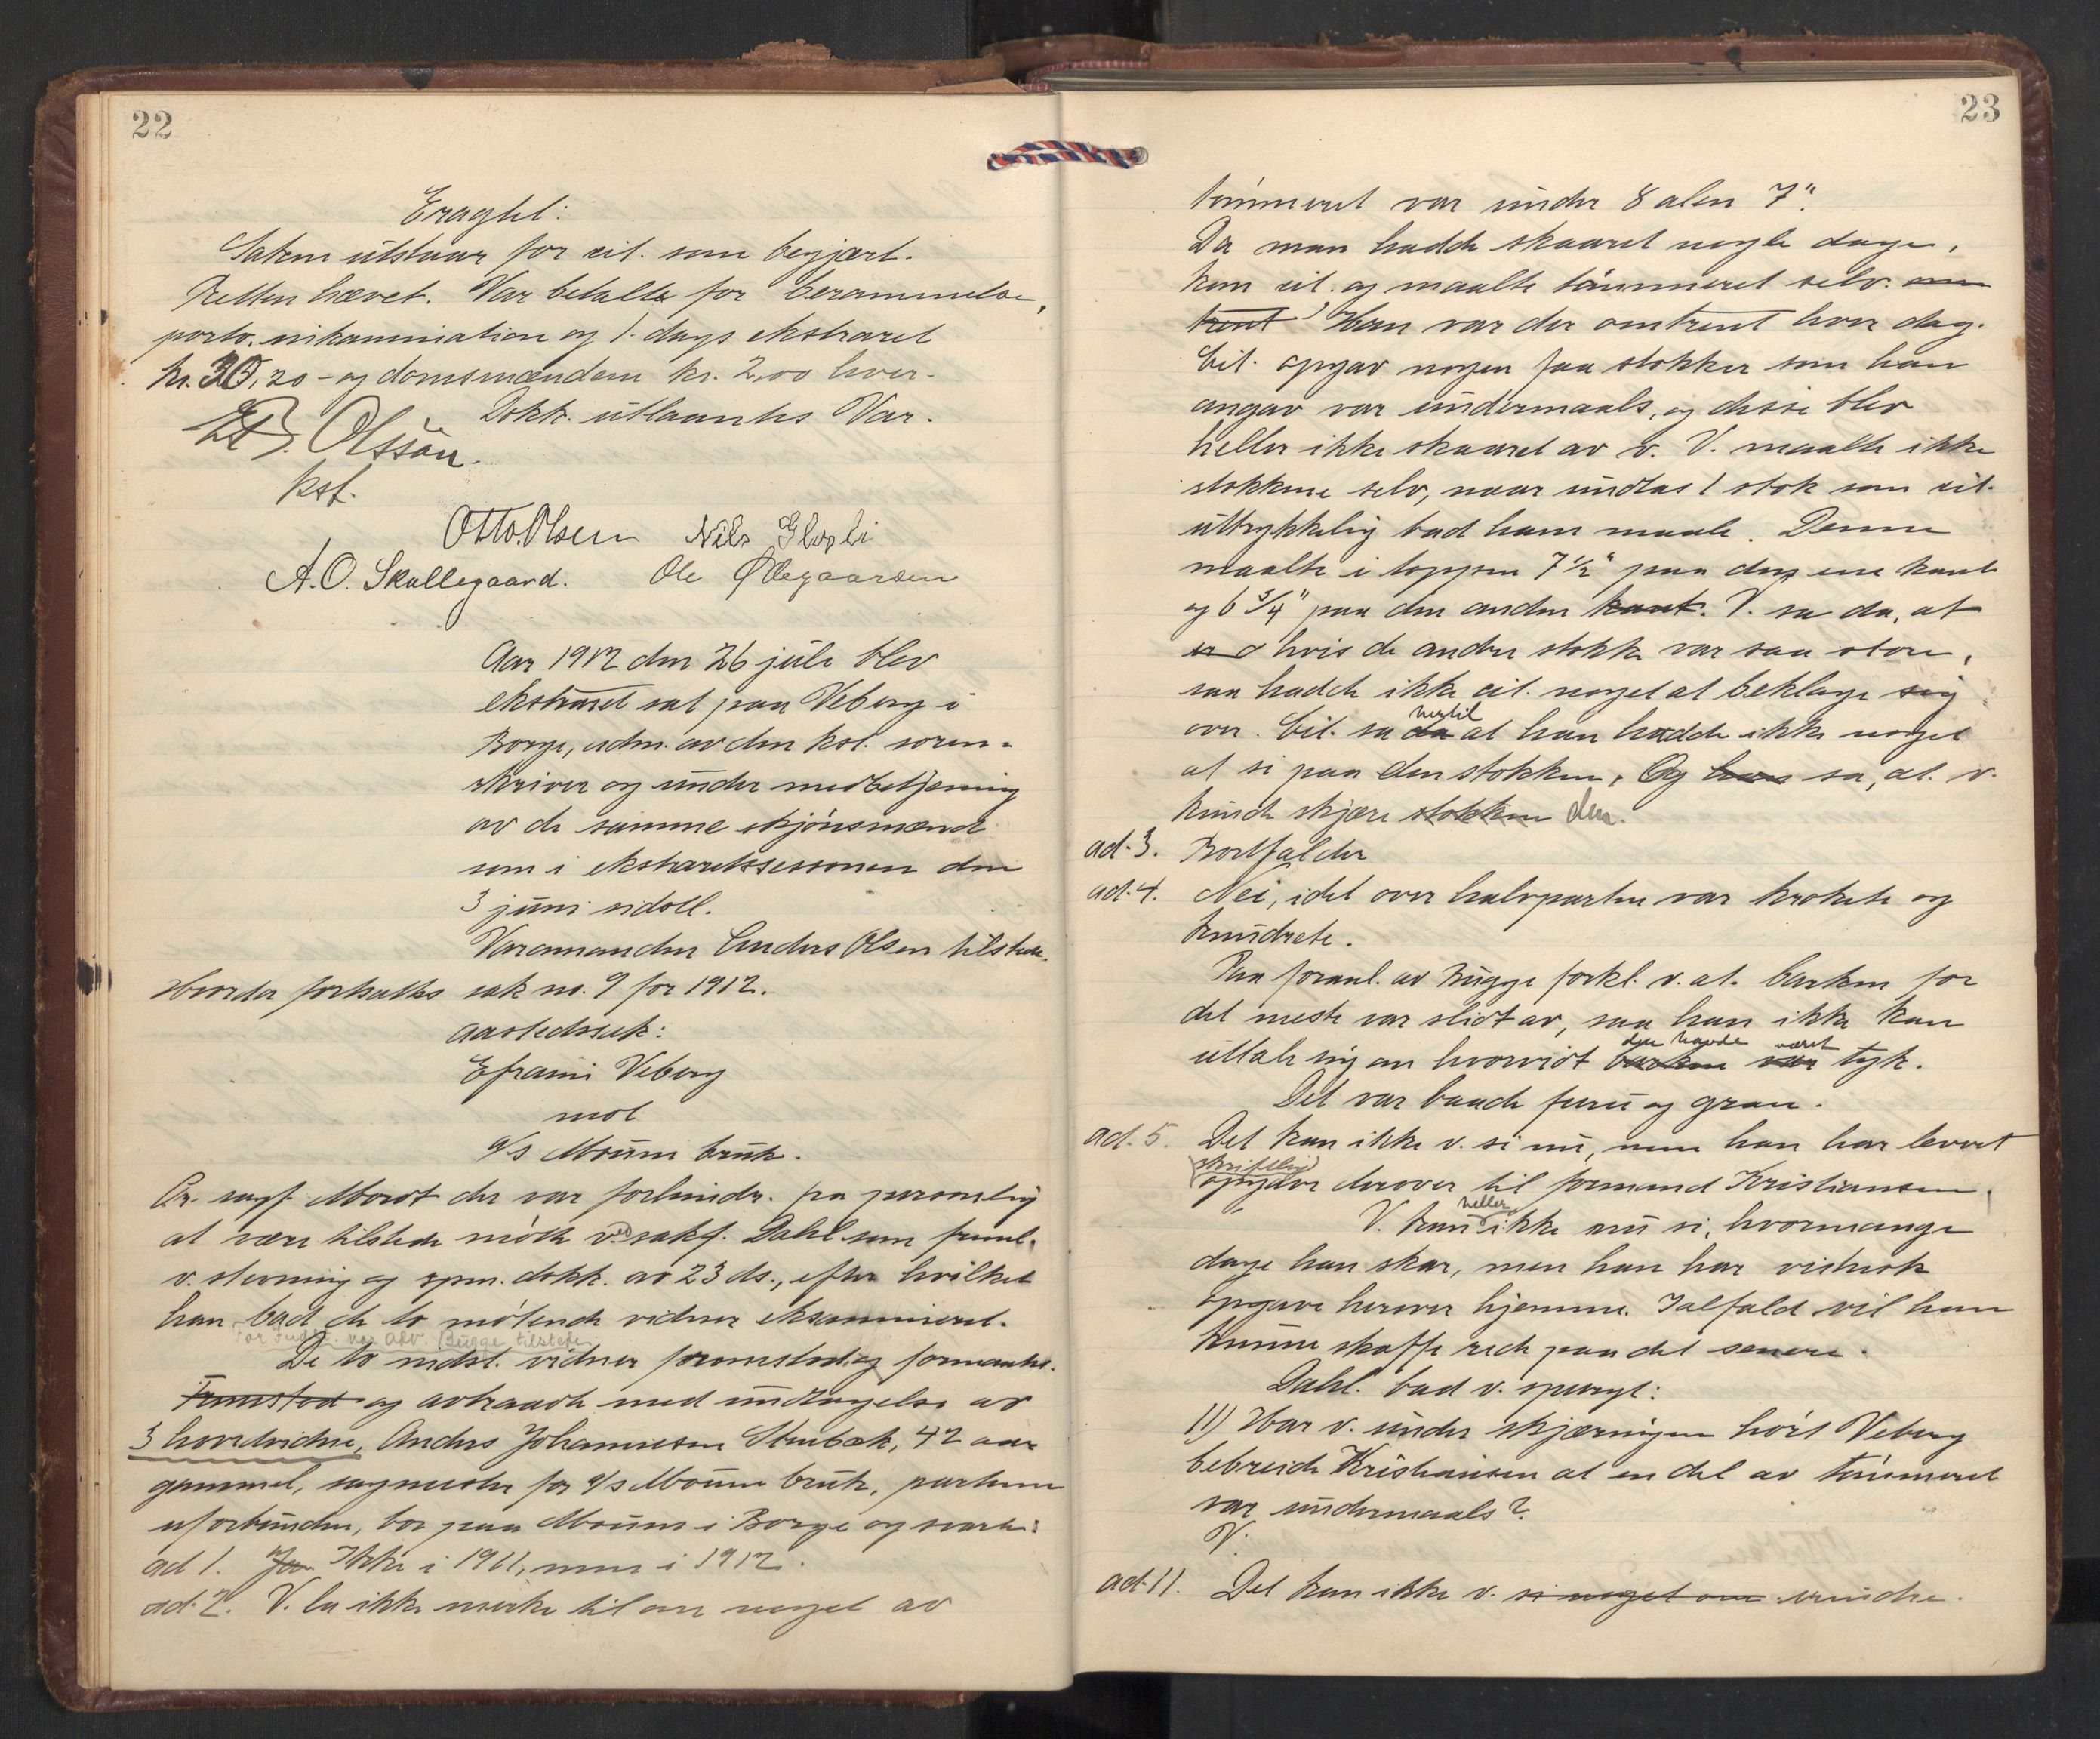 22
Eragtet:
Saken utstaar for cit. som begjært.
Retten hævet. Var betalte for berammelse,
porto, inkamination og 1. dags ekstraret
kr. 30,20 – og domsmændene kr. 2,00 hver.
Dokk. utlaantes Var.
Olsson
kst.
Otto Olsen Nils Glosli
A. O. Skallegaard. Ole Ødegaarsen
Aar 1912 den 26 juli blev
ekstraret sat paa Veberg i
Borge, adm. av den kst. soren-
skriver og under medbetjening
av de samme skjønsmænd
som i ekstraretssessionen den
3 juni sidstl.
Varamanden Anders Olsen tilstede.
Hvorda fortsattes sak no. 9 for 1912.
Aastedssak:
Efraim Veberg
mot
a/s Moum bruk.
Or. sagf. Mordt der var forhindr. fra personlig
at være tilstede møtte v. sakf. Dahl som freml.
v. stevning og spm. dokk. av 23 ds., efter hvilket
han bad de to møtende vidner eksamineret.
For Indst. var adv. Bugge tilstede.
De to indst. vidner fremstod og formantes.
Fremstod og avtraadte med undtagelse av
3 hovedvidne, Anders Johannesen Stenbæk, 42 aar
gammel, sagmester for a/s Moum bruk, partene
uforbunden, bor paa Moum i Borge og svarte:
ad 1. Jeo Ikke i 1911, men i 1912.
ad. 2. V. la ikke merke til om noget av
23
tømmeret var under 8 alen 7".
Da man hadde skaaret nogle dage,
kom cit. og maalte tømmeret selv. om
trent Han var der omtrent hver dag.
Cit. opgav nogen faa stokker som han
angav var undermaals, og disse blev
heller ikke skaaret av v. V. maalte ikke
stokkene selv, naar undtas 1 stok som cit.
uttrykkelig bad ham maale. Denne
maalte i toppen 7 1/2" paa den ene kant
og 6 3/4" paa den anden kant. V. sa da, at
hvis de andre stokke var saa store,
saa hadde ikke cit. noget at beklage sig
over. Cit. sa da hertil at han hadde ikke noget
at si paa den stokken, Og han sa, at v.
kunde skjære stokken den.
ad. 3. Bortfalder
ad. 4. Nei, idet over halvparten var krokete og
kundrete.
Paa foranl. av Bugge forkl. v. at barken for
det meste var slidt av, saa han ikke kan
uttale sig om hvorvidt barken var den havde været tyk.
Det var baade furu og gran.
ad. 5. Det kan ikke v. si nu, men han har levert
skriftlig opgave derover til formand Kristiansen.
V. kan heller ikke nu si, hvormange
dage han skar, men han har vistnok
opgave herover hjemme. Ialfald vil han
kunne skaffe rede paa det senere.
Dahl. bad v. spurgt:
11) Har v. under skjæringen hørt Veberg
bebreide Kristiansen at en del av tømmeret
var undermaals?
V.
ad. 11. Det kan ikke v. si noget om erindre.